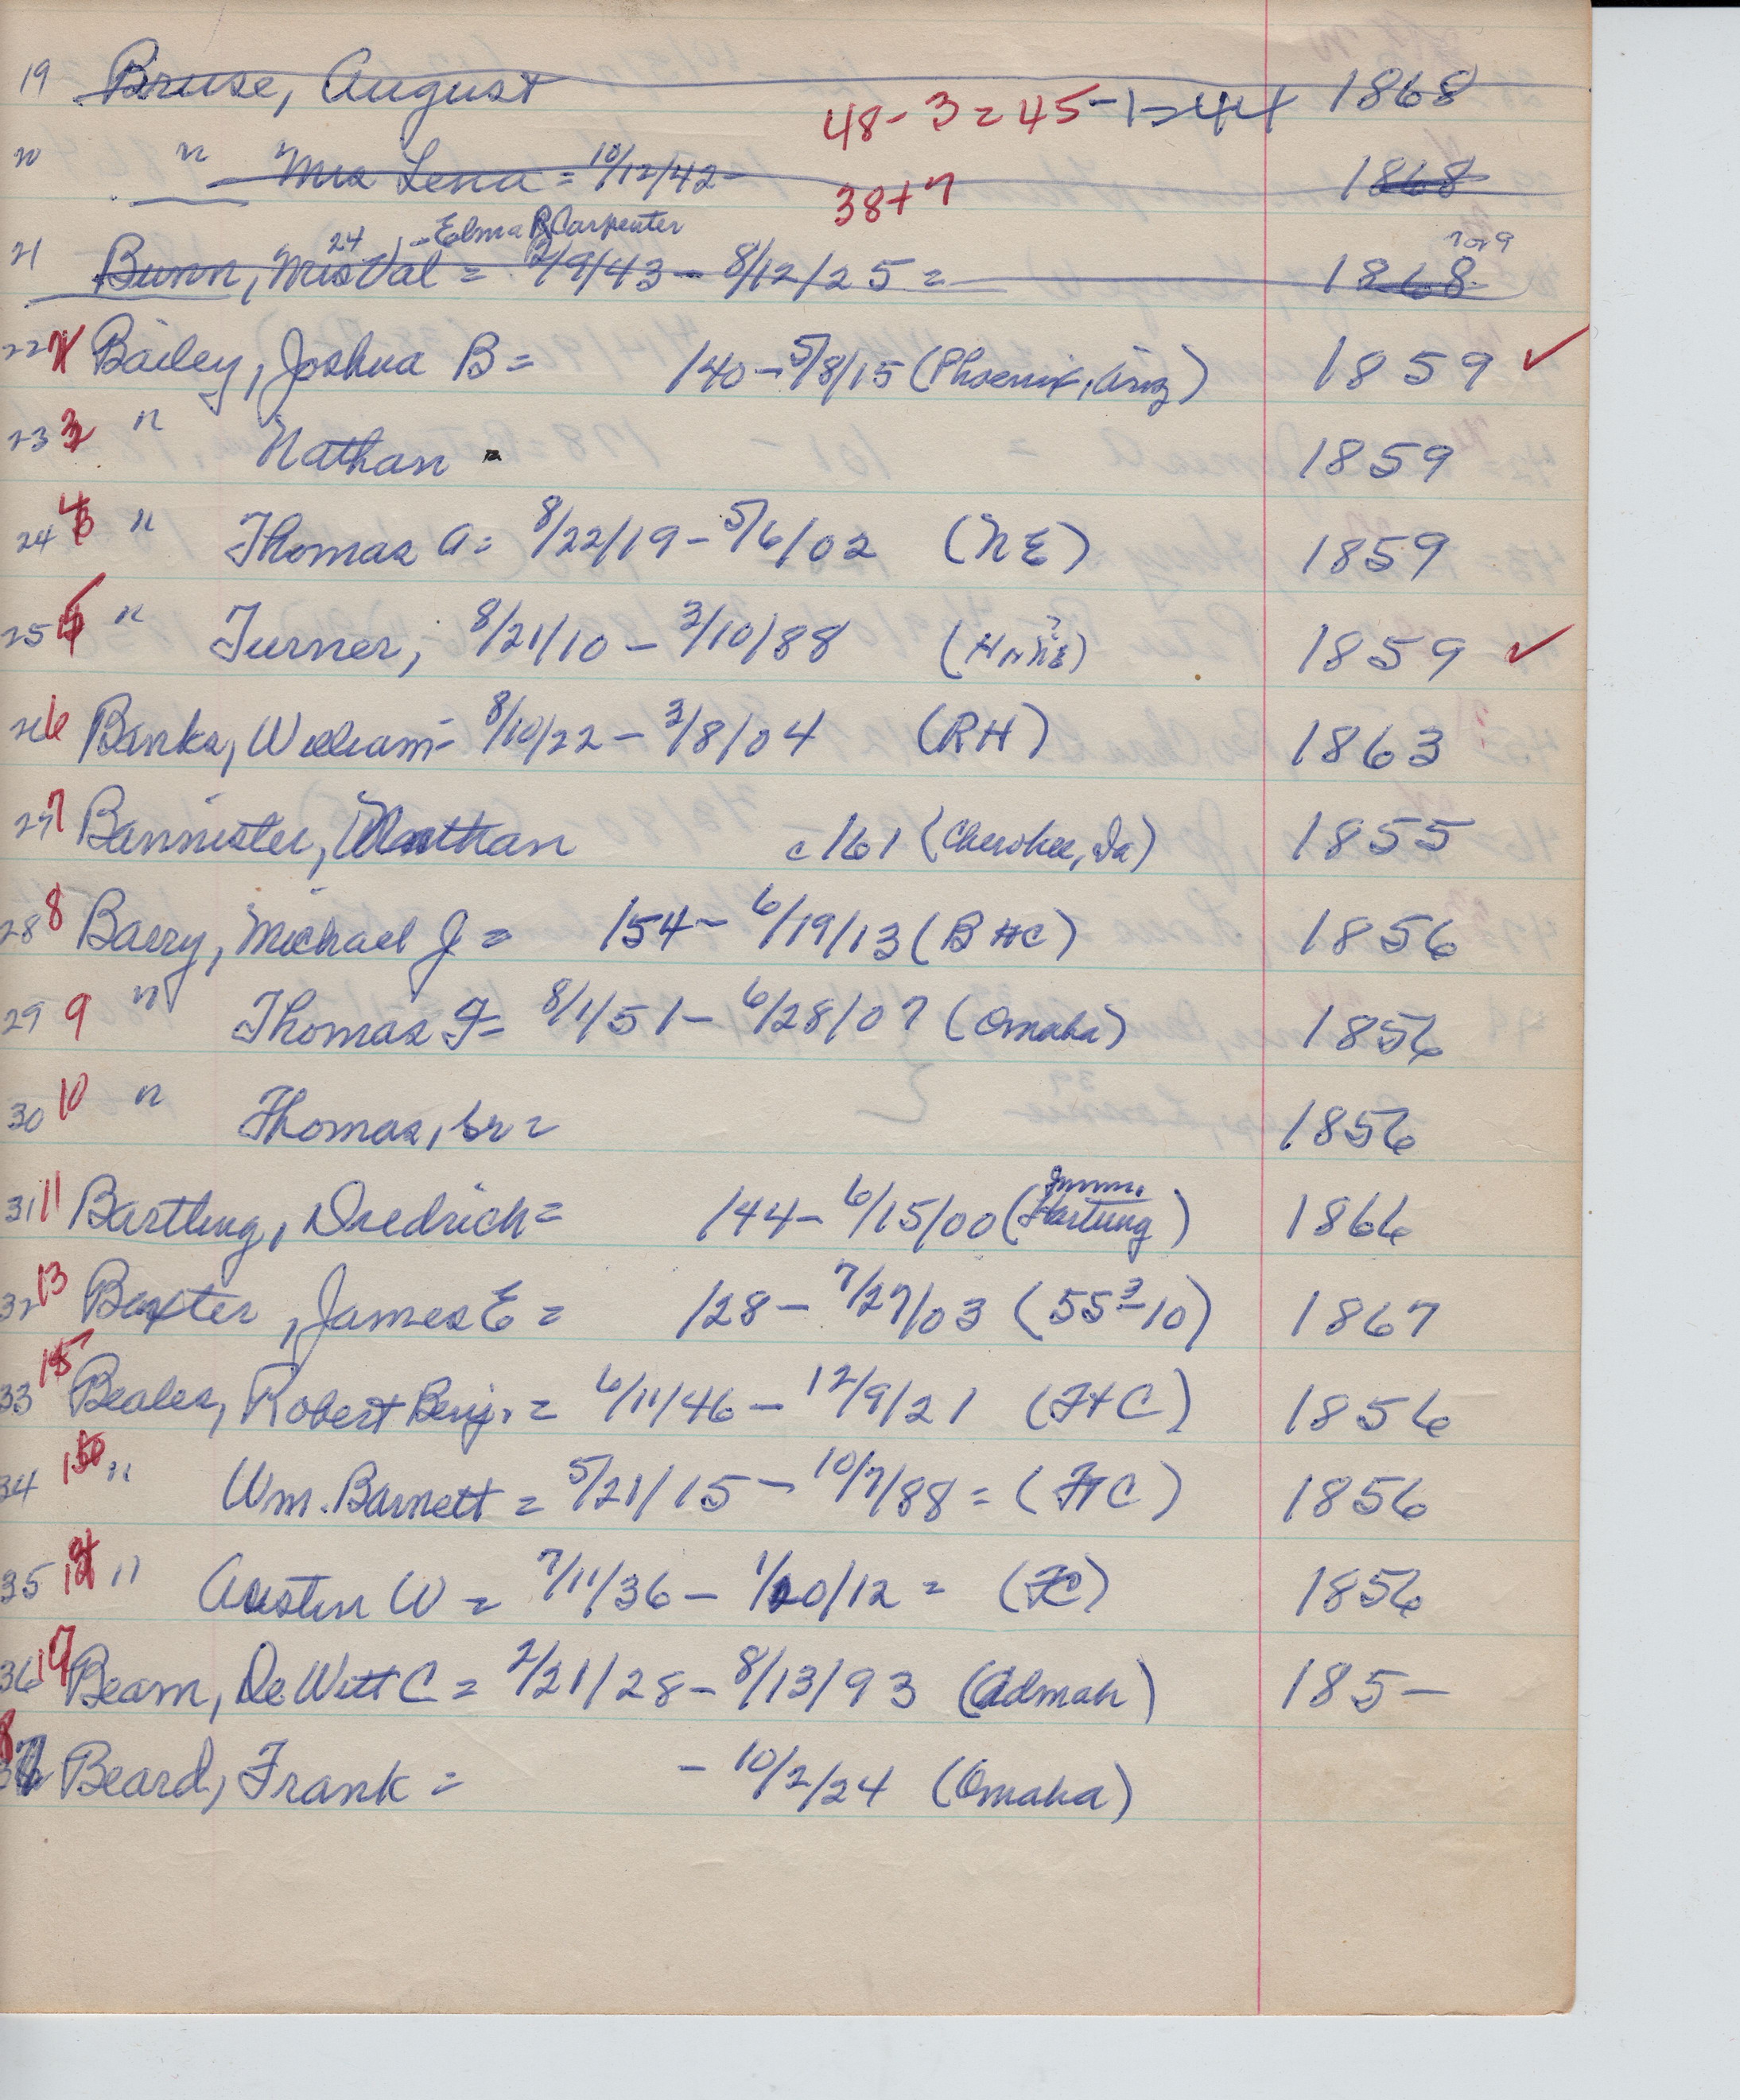 19 Bruse, August 48-3=45-1=44 1868
" " Mrs Lena = 10/12/42- 38+7 1868
24 - Elma B Carpenter 7 or 9
21 Bunn, Mrs Val = 2/9/43 - 8/12/25 = 1868
22 Bailey, Joshua B = 140 - 5/8/15 (Phoenix, Ariz) 1859 ✓
23 3 " Nathan = 1859
24 4 " Thomas A = 8/22/19 - 5/6/02 (NE) 1859
25 5 " Turner, 8/21/10 - 3/10/88 (H or NE) ? 1859 ✓
26 6 Banks, William - 8/10/22 - 3/8/04 (RH) 1863
27 7 Bannister, Nathan c 161 (Cherokee, Ia) 1855
28 8 Barry, Michael J = 154 - 6/19/13 (B HC) 1856
29 9 " Thomas F = 8/1/51 - 6/28/07 (Omaha) 1856
30 10 " Thomas, Sr = 1856
31 11 Bartling, Diedrich = 144 - 6/15/00 (Hartung) 1866
32 13 Baxter, James E = 128 - 7/27/03 (55-3-10) 1867
33 15 Beales, Robert Benj. = 6/11/46 - 12/9/21 (FHC) 1856
34 " Wm. Barnett = 5/21/15 - 10/7/88 = (FHC) 1856
35 " Austin W = 7/11/36 - 1/20/12 = (FC) 1856
36 17 Beam, De Witt C = 2/21/28 - 8/13/93 (Admah) 185-
Beard, Frank = - 10/2/24 (Omaha)